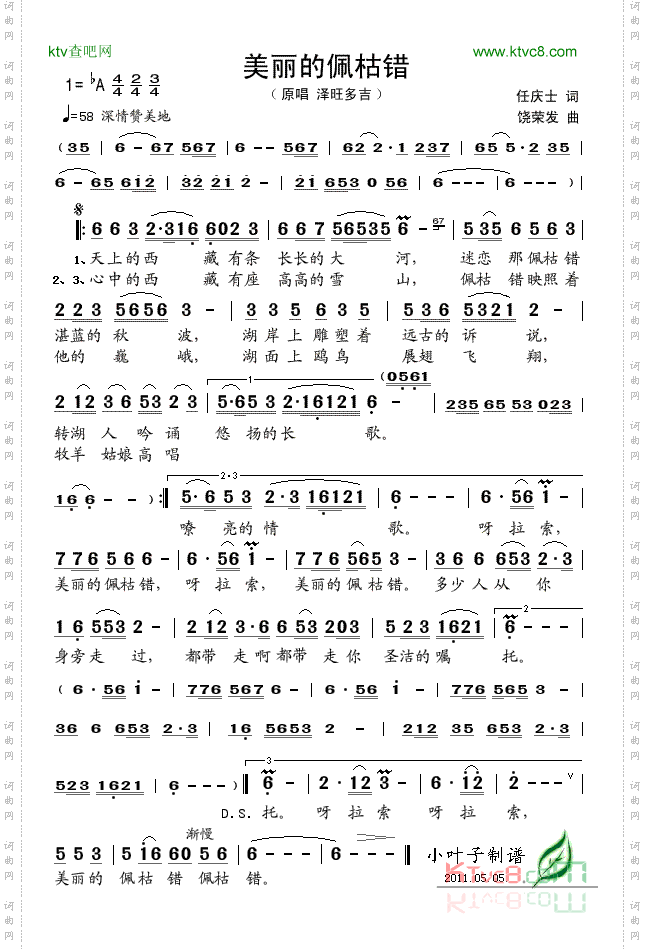 ktv查吧网
www.ktvc8.com
美丽的佩枯错
（原唱 泽旺多吉）
1=♭A 4/4 2/4 3/4
任庆士 词
♩=58 深情赞美地
饶荣发 曲
（ 35 | 6 - 67 567 | 6 - - 567 | 62 2·1 237 | 65 5·2 35
6 - 65 612 | 32 21 2 - | 21 653 0 56 | 6 - - - | 6 - - - ）
𝄋
‖: 6 6 3 2·316 602 3 | 6 6 7 56535 6 - 67 3 | 5 35 6 56 3
1、天上的西 藏有条 长长的大 河， 迷恋 那佩枯错
2、3、心中的西 藏有座 高高的雪 山， 佩枯 错映照着
2 2 3 5656 3 - | 3 3 5 6 3 5 | 5 3 6 5321 2 -
湛蓝的 秋 波， 湖岸上雕塑着 远古的 诉 说，
他的 巍 峨， 湖面上鸥鸟 展翅 飞 翔，
1
（0561
2 12 3 6 53 2 3 | 5·65 3 2·16121 6 - | 235 65 53 023
转湖 人 吟 诵 悠 扬的长 歌。
牧羊 姑娘高 唱
2·3
16 6 - - ）:‖ 5·6 5 3 2·3 16121 | 6 - - - | 6·56 1 -
嘹 亮的情 歌。 呀拉索，
7 7 6 5 6 6 - | 6·56 1 - | 7 7 6 565 3 | 3 6 6 653 2·3
美丽的佩枯错， 呀 拉 索， 美丽的佩枯错。 多少人从 你
2
1 6 553 2 - | 2 12 3·6 653 203 | 5 523 1621 | 6 - -
身旁走 过， 都带 走啊都带 走你 圣洁的嘱 托。
（ 6·56 1 - | 776 567 6 - | 6·56 1 - | 776 5635 3 -
36 6 653 2·3 | 16 5653 2 - | 212 35 653 2·3
3
523 1621 | 6 - - - ）‖ 6 - - - | 2·12 3 - | 6·12 2 - - - V
D.S. 托。 呀 拉索 呀 拉 索，
渐慢
5 5 3 | 5 16 60 56 | 6 - - | 6 - - ‖
小叶子制谱
美丽的 佩枯 错 佩枯 错。
KTvc8.com
2011.05.05